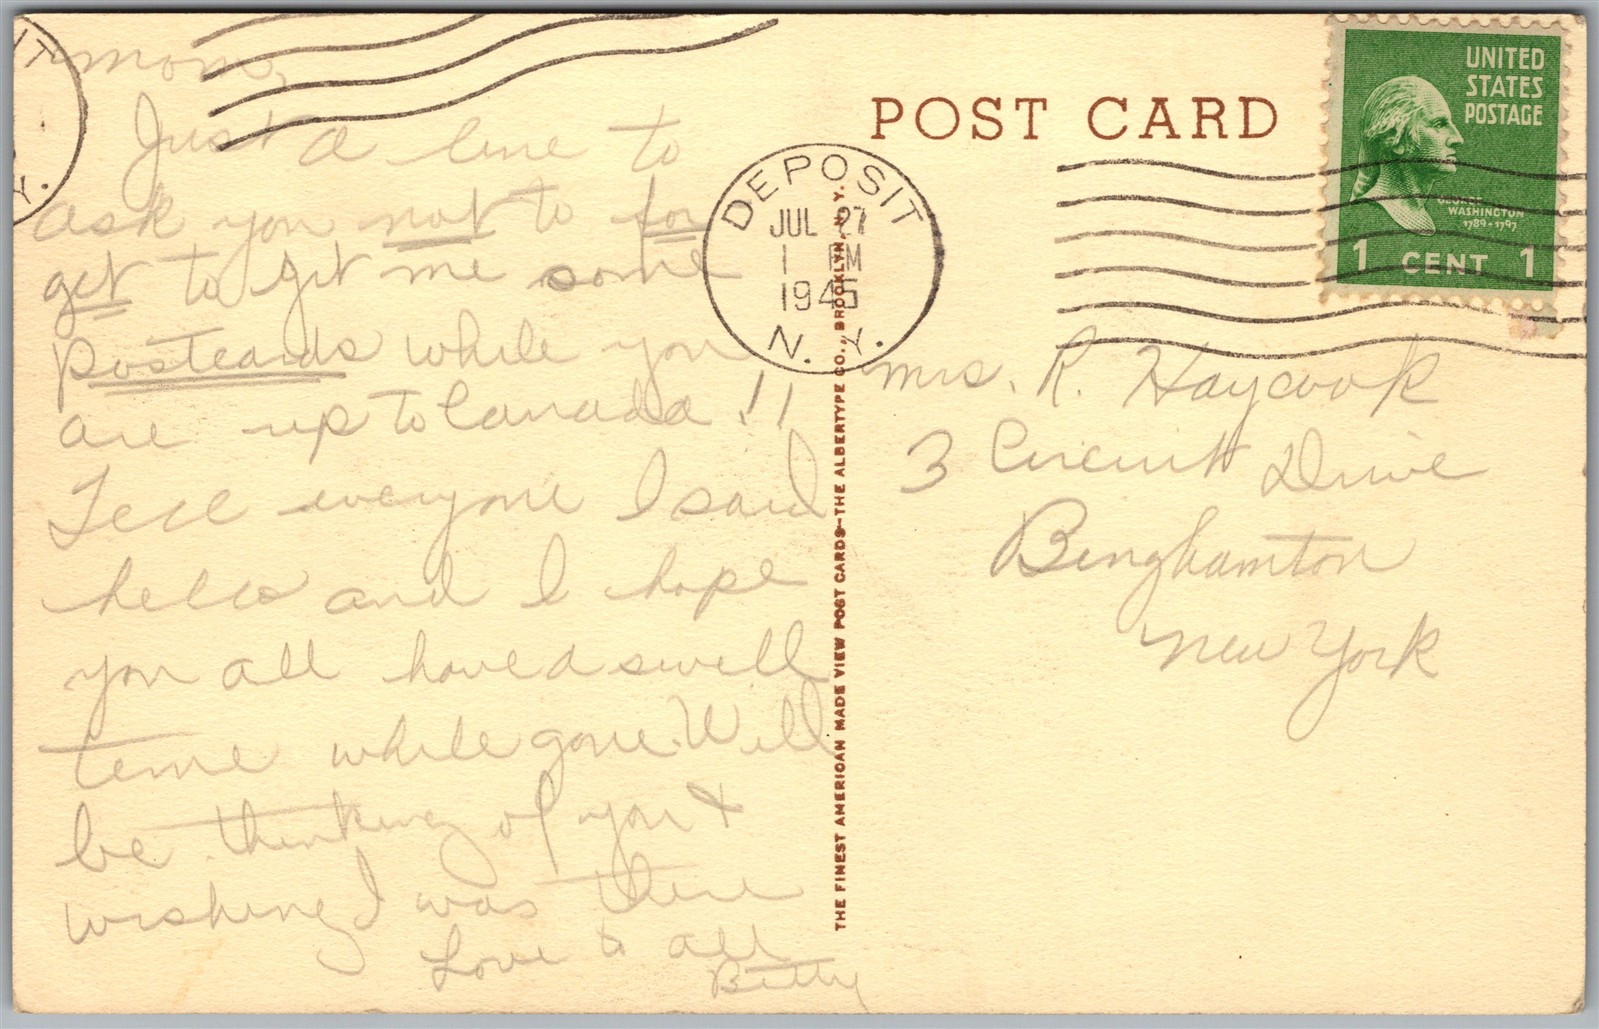 Mom,
Just a line to
ask you not to for
get to get me some
postcards while you
are up to Canada!!
Tell everyone I said
hello and I hope
you all have a swell
time while gone. Will
be thinking of you &
wishing I was there
Love to all
Betty
THE FINEST AMERICAN MADE VIEW POST CARDS—THE ALBERTYPE CO., BROOKLYN, N.Y.
POST CARD
DEPOSIT
JUL 27
1 PM
1945
N. Y.
UNITED
STATES
POSTAGE
GEORGE
WASHINGTON
1789-1797
1 CENT 1
Mrs. R. Haycook
3 Circuit Drive
Binghamton
New York
IT
Y.